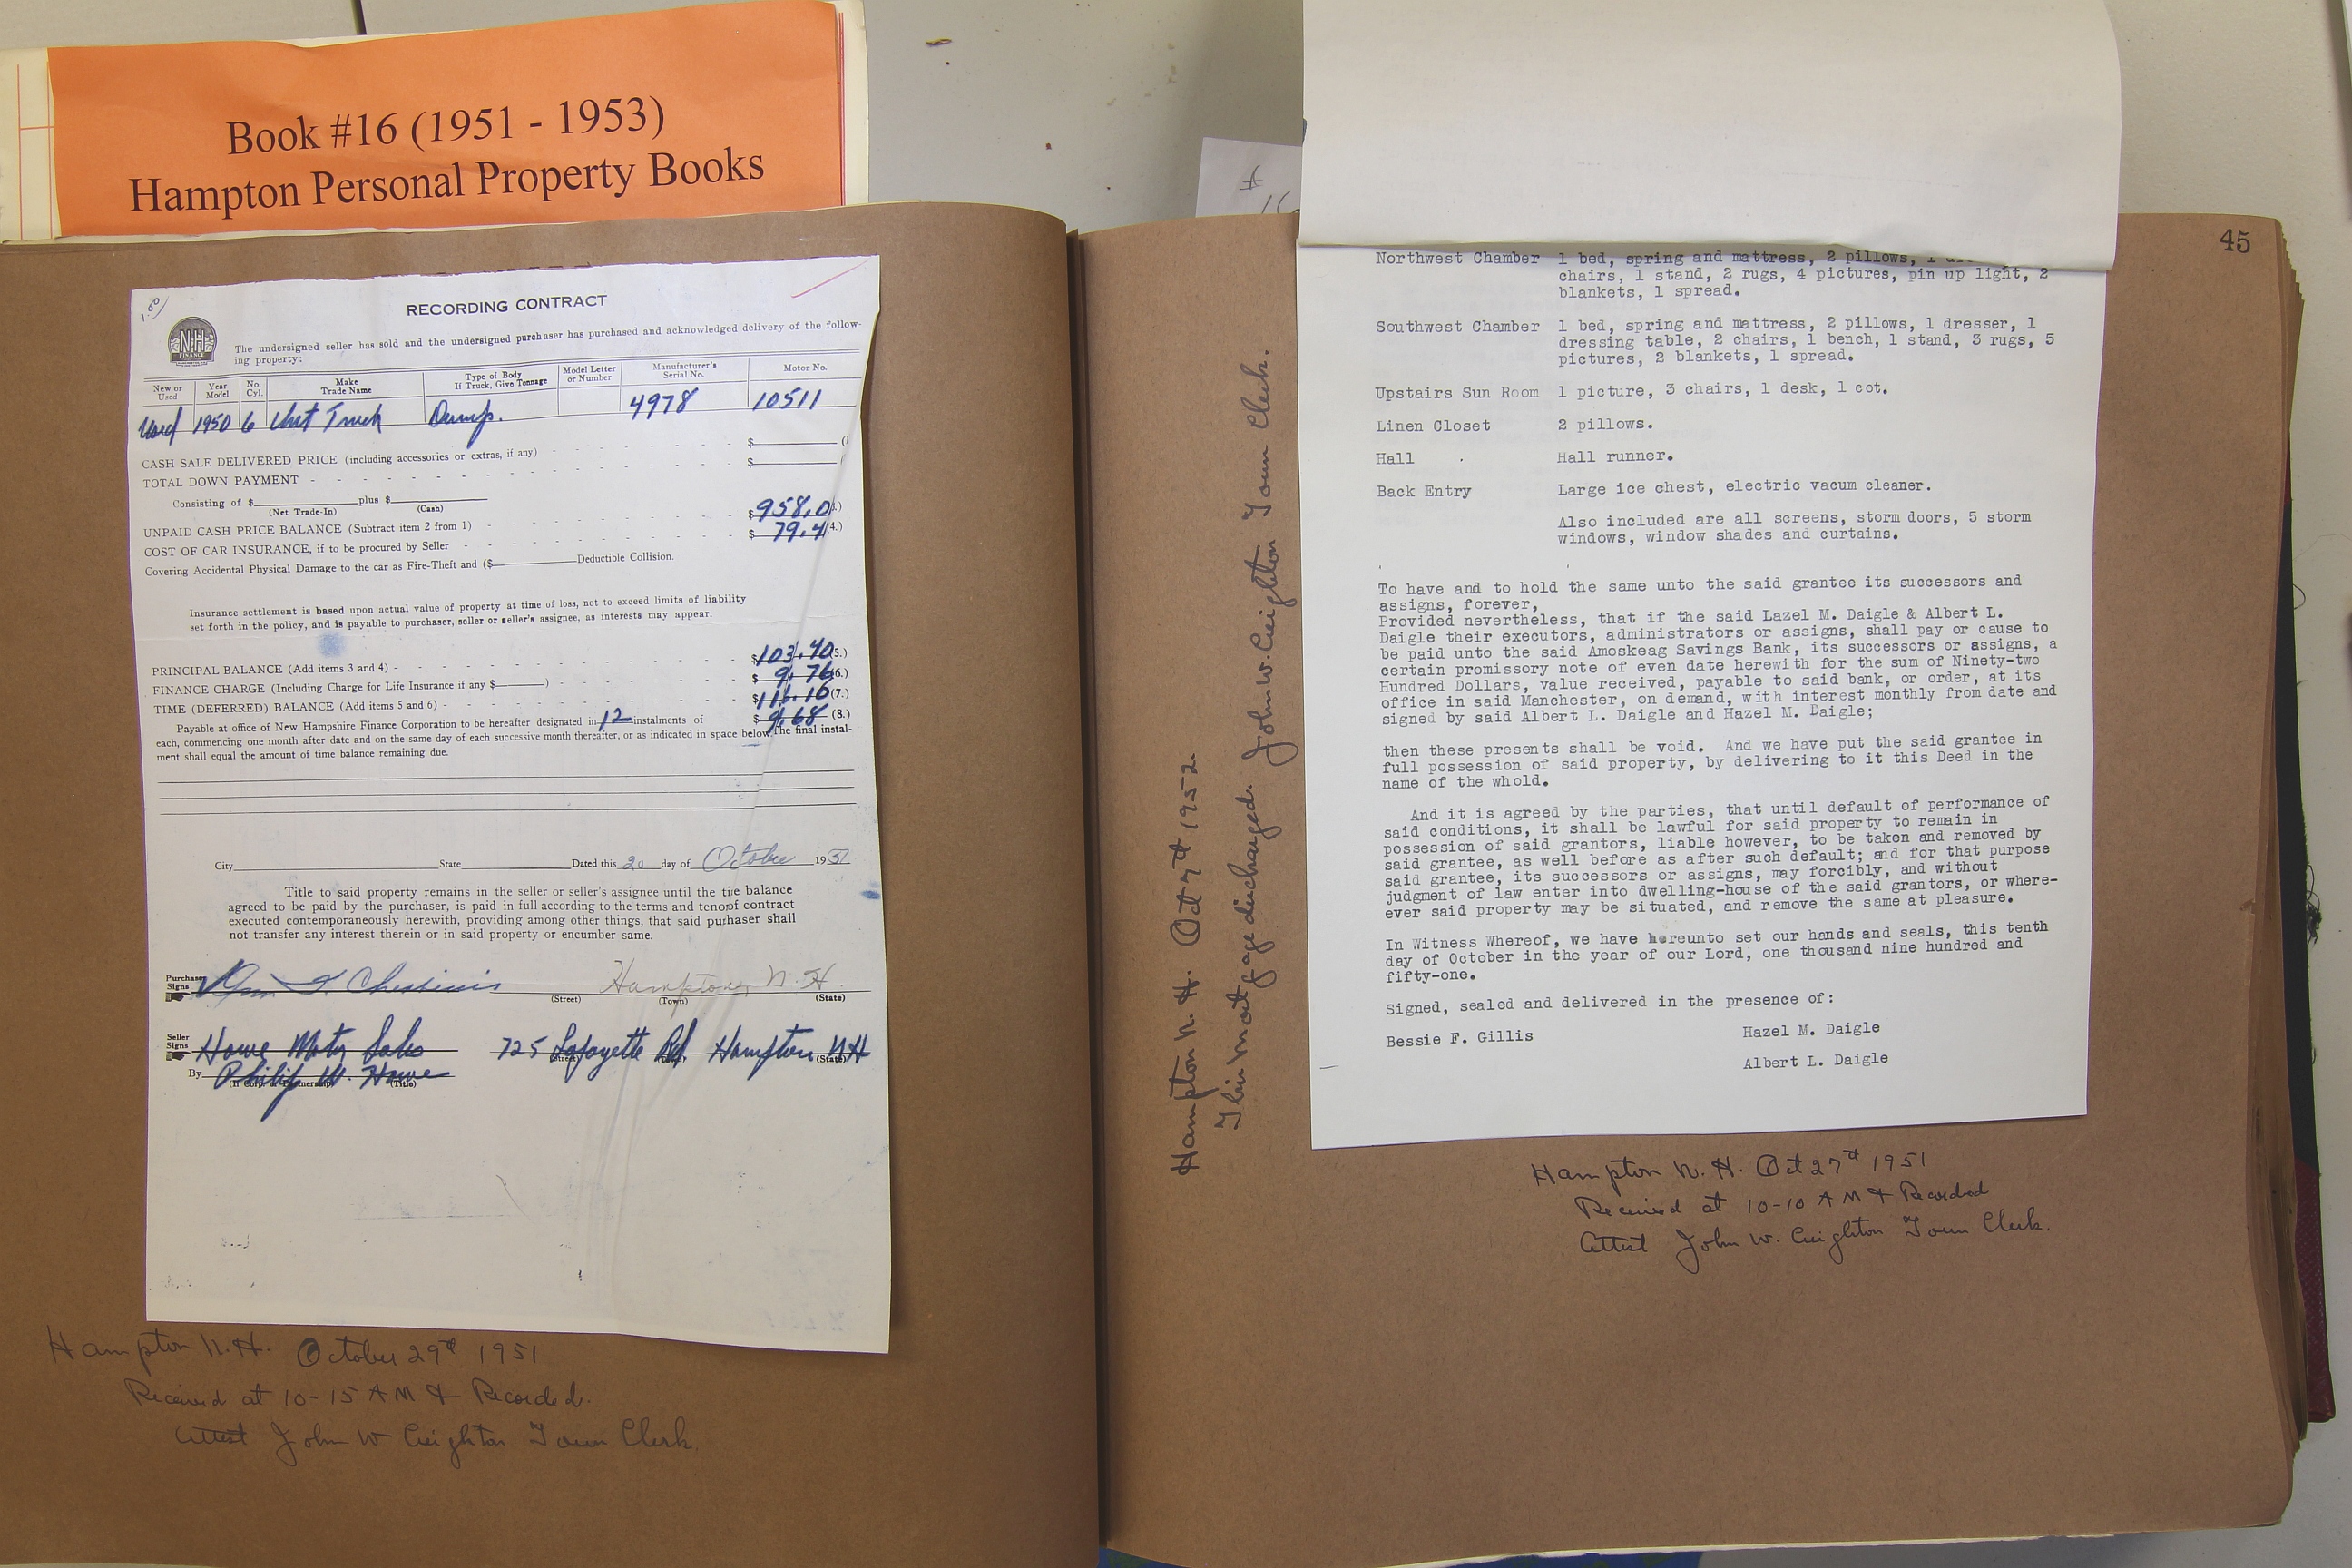 Book #16 (1951 - 1953)
Hampton Personal Property Books
RECORDING CONTRACT
NH
FINANCE
The undersigned seller has sold and the undersigned purchaser has purchased and acknowledged delivery of the follow-
ing property:
New or Used | Year Model | No. Cyl. | Make Trade Name | Type of Body If Truck, Give Tonnage | Model Letter or Number | Manufacturer's Serial No. | Motor No.
Used 1950 6 Truck Dump. 4978 10511
CASH SALE DELIVERED PRICE (including accessories or extras, if any) - - - - - - $
TOTAL DOWN PAYMENT - - - - - - $
Consisting of $ plus $
(Net Trade-In) (Cash)
UNPAID CASH PRICE BALANCE (Subtract item 2 from 1) - - - - - - $958.0
COST OF CAR INSURANCE, if to be procured by Seller - - - - - - $79.4 (4.)
Covering Accidental Physical Damage to the car as Fire-Theft and ($ Deductible Collision.
Insurance settlement is based upon actual value of property at time of loss, not to exceed limits of liability
set forth in the policy, and is payable to purchaser, seller or seller's assignee, as interests may appear.
PRINCIPAL BALANCE (Add items 3 and 4) - - - - - - $103.40 (5.)
FINANCE CHARGE (Including Charge for Life Insurance if any $ ) - - - - - - $9.76 (6.)
TIME (DEFERRED) BALANCE (Add items 5 and 6) - - - - - - $116.16 (7.)
Payable at office of New Hampshire Finance Corporation to be hereafter designated in 12 instalments of $9.68 (8.)
each, commencing one month after date and on the same day of each successive month thereafter, or as indicated in space below. The final instal-
ment shall equal the amount of time balance remaining due.
City State Dated this 20 day of October 1951
Title to said property remains in the seller or seller's assignee until the time balance
agreed to be paid by the purchaser, is paid in full according to the terms and tenor of contract
executed contemporaneously herewith, providing among other things, that said purchaser shall
not transfer any interest therein or in said property or encumber same.
Purchaser Signs Hampton, N.H.
(Street) (Town) (State)
Seller Signs Howe Motor Sales 725 Lafayette Rd Hampton NH
(Street) (Town) (State)
By Philip W. Howe
(If Corp. or Partnership) (Title)
Hampton N.H. October 29th 1951
Received at 10-15 AM & Recorded.
Attest John W Creighton Town Clerk.
Hampton N.H. Oct 7th 1952.
This mortgage discharged. John W. Creighton Town Clerk.
45
#
Northwest Chamber 1 bed, spring and mattress, 2 pillows, 1
chairs, 1 stand, 2 rugs, 4 pictures, pin up light, 2
blankets, 1 spread.
Southwest Chamber 1 bed, spring and mattress, 2 pillows, 1 dresser, 1
dressing table, 2 chairs, 1 bench, 1 stand, 3 rugs, 5
pictures, 2 blankets, 1 spread.
Upstairs Sun Room 1 picture, 3 chairs, 1 desk, 1 cot.
Linen Closet 2 pillows.
Hall Hall runner.
Back Entry Large ice chest, electric vacum cleaner.
Also included are all screens, storm doors, 5 storm
windows, window shades and curtains.
To have and to hold the same unto the said grantee its successors and
assigns, forever,
Provided nevertheless, that if the said Lazel M. Daigle & Albert L.
Daigle their executors, administrators or assigns, shall pay or cause to
be paid unto the said Amoskeag Savings Bank, its successors or assigns, a
certain promissory note of even date herewith for the sum of Ninety-two
Hundred Dollars, value received, payable to said bank, or order, at its
office in said Manchester, on demand, with interest monthly from date and
signed by said Albert L. Daigle and Hazel M. Daigle;
then these presents shall be void. And we have put the said grantee in
full possession of said property, by delivering to it this Deed in the
name of the whold.
And it is agreed by the parties, that until default of performance of
said conditions, it shall be lawful for said property to remain in
possession of said grantors, liable however, to be taken and removed by
said grantee, as well before as after such default; and for that purpose
said grantee, its successors or assigns, may forcibly, and without
judgment of law enter into dwelling-house of the said grantors, or where-
ever said property may be situated, and remove the same at pleasure.
In Witness Whereof, we have hereunto set our hands and seals, this tenth
day of October in the year of our Lord, one thousand nine hundred and
fifty-one.
Signed, sealed and delivered in the presence of:
Bessie F. Gillis Hazel M. Daigle
Albert L. Daigle
Hampton N.H. Oct 27th 1951
Received at 10-10 AM & Recorded
Attest John W. Creighton Town Clerk.